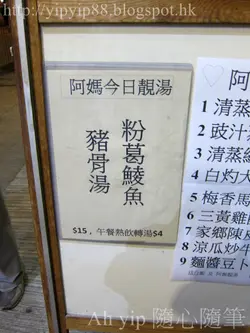 http://yipyip88.blogspot.hk
阿媽今日靚湯
粉葛鯪魚
豬骨湯
$15，午餐熱飲轉湯$4
♡ 阿
1 清蒸
2 豉汁
3 清蒸
4 白灼
5 梅香馬
6 三黃雞
7 家鄉陳皮
8 涼瓜炒牛
9 麵醬豆卜
Ah yip 隨心隨筆